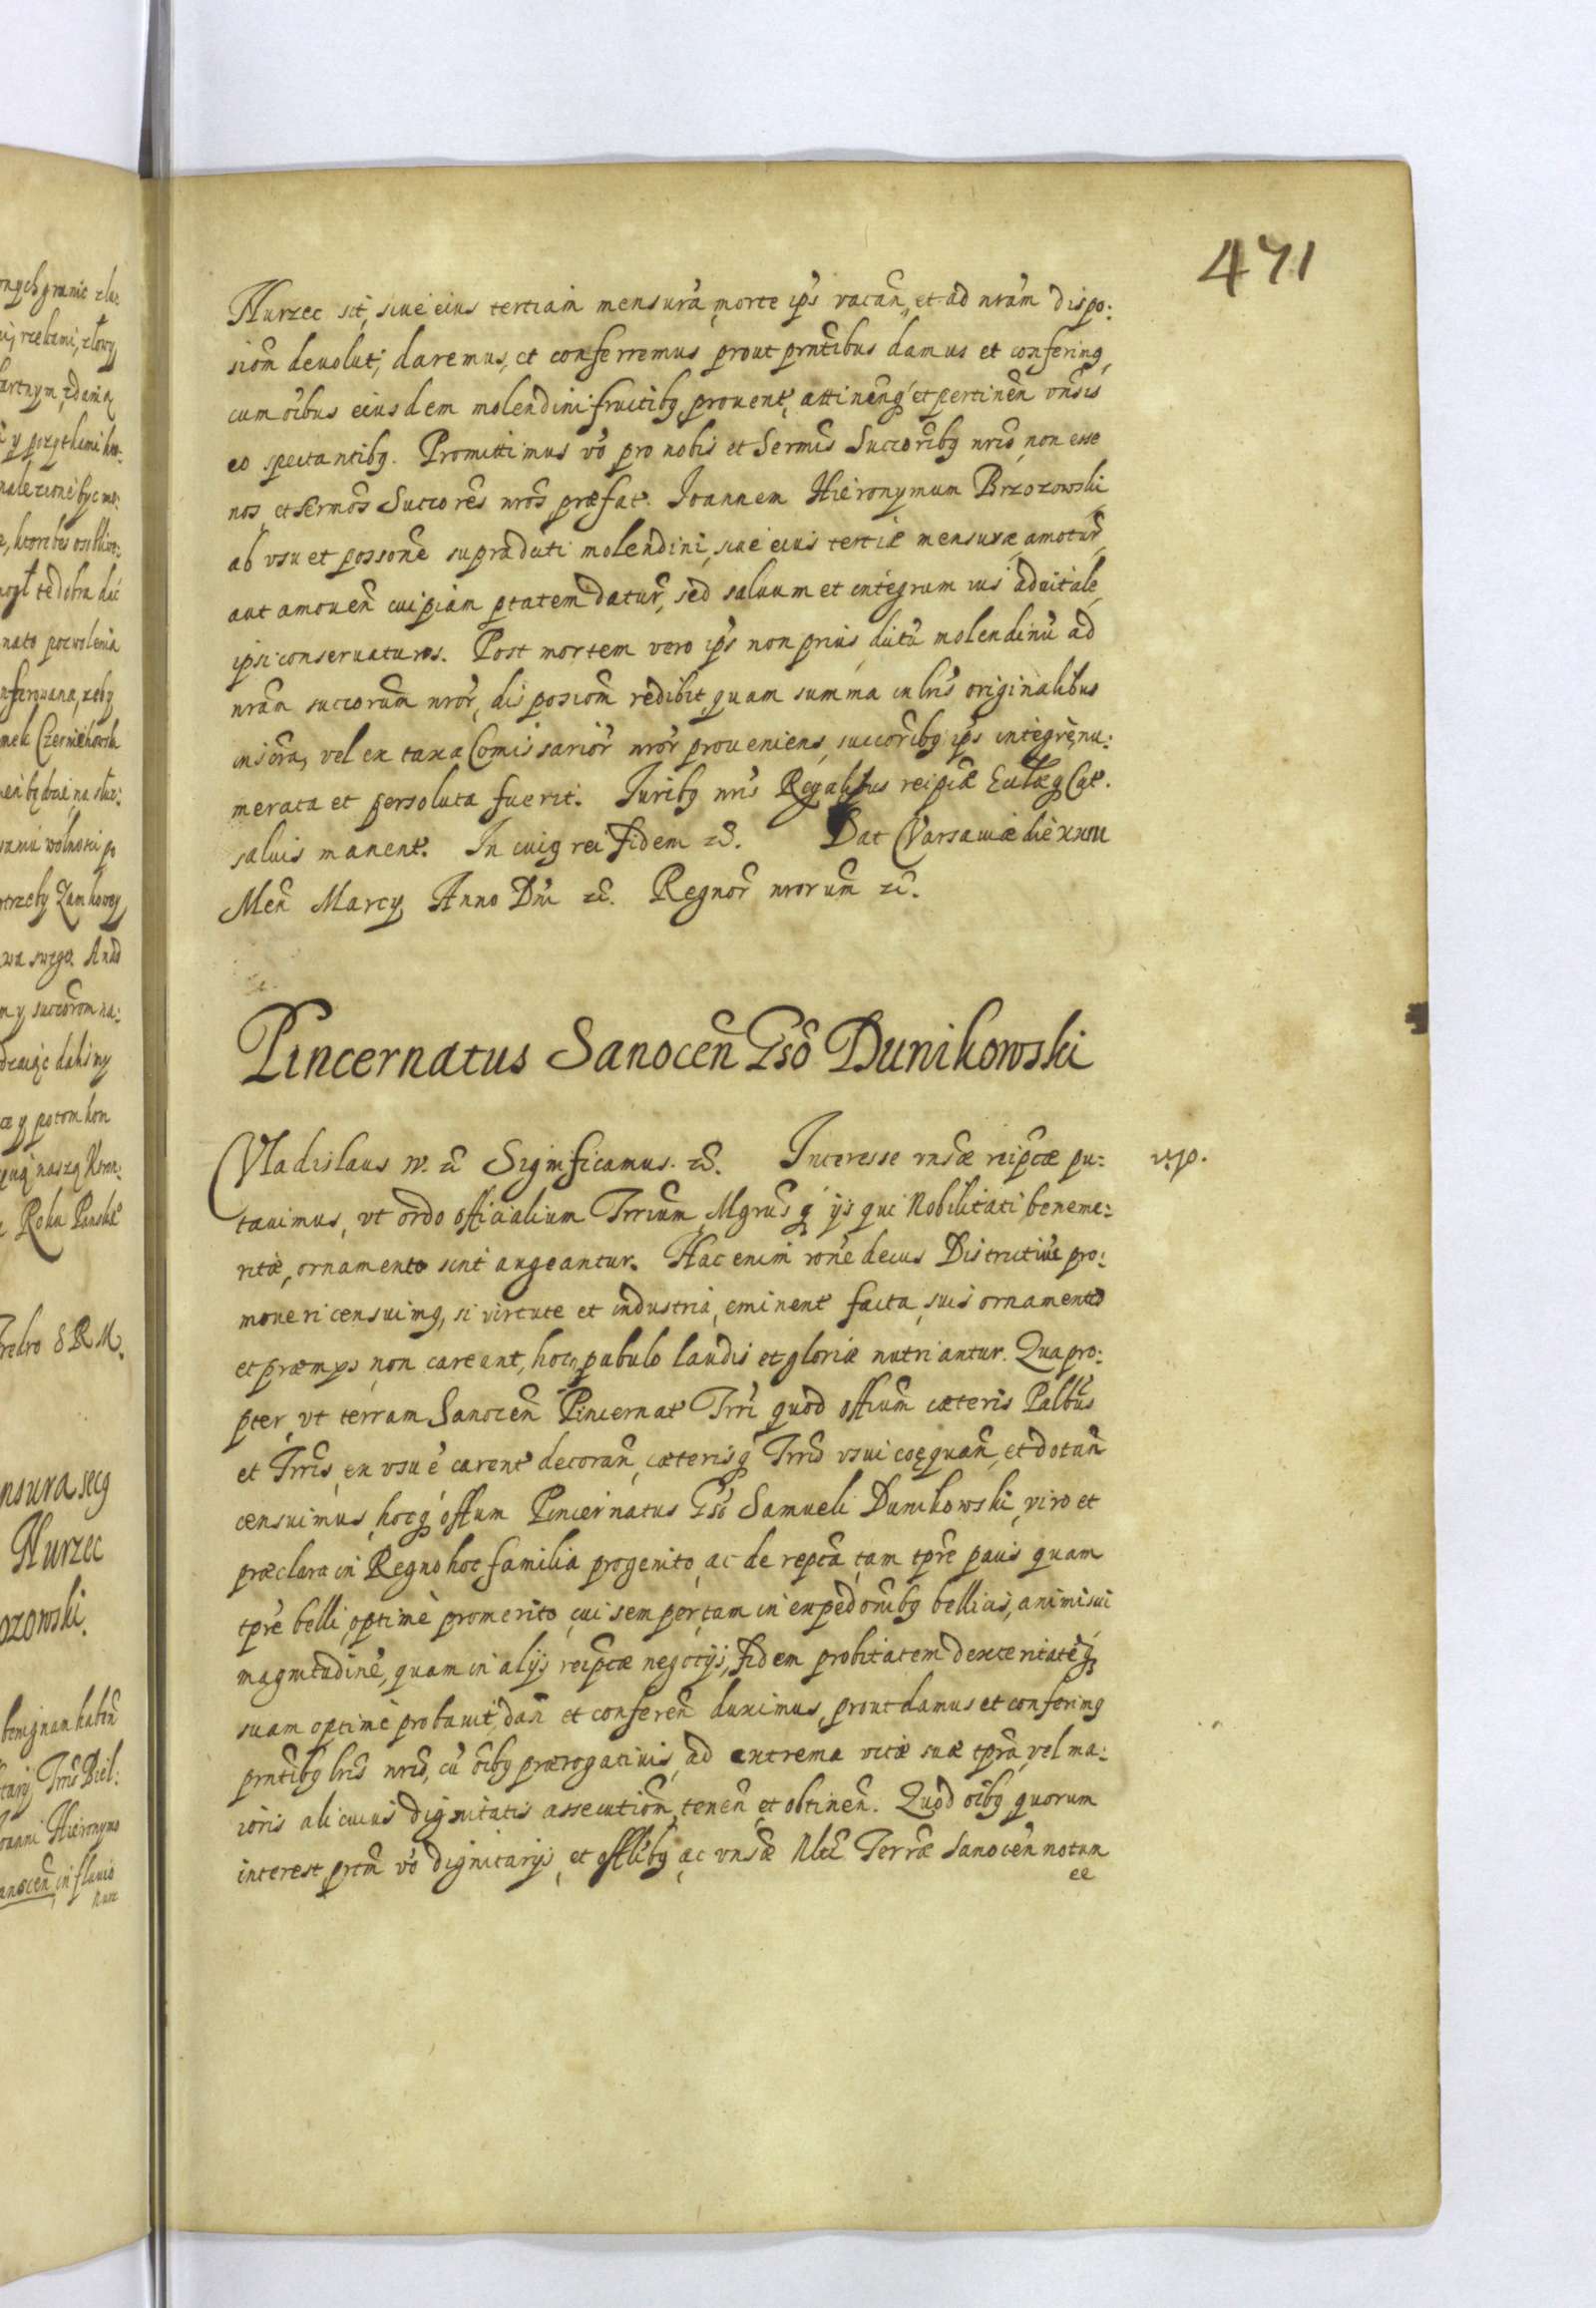 471
Nurzec sit, siue eius tertiam mensurā, morte ips vacan, et ad nram dispo:
siom deuolut, daremus, et conferremus prout prntibus damus et conferimq,
cum oibus eiusdem molendini fructibq, prouent, attinenq et pertinen vnsis
eo spectantibq. Promittimus vo pro nobis et Sermis Succoribq nris, non esse
nos, et sermos Succores nros, præfat. Ioannem Hieronymum Brzozowski
ab vsu et possone supradicti molendini, siue eius tertiæ mensuræ amotur,
aut amouen cuipiam ptatem datur, sed saluum et integrum ius aduitale,
ipsi conseruaturos. Post mortem vero ips non prius dictū molendinū ad
nram succorum nror, disposiom redibit, quam summa in lris originalibus
inscra, vel ex taxa Comissarior nror proueniens, succoribq ips integrè, nu:
merata et persoluta fuerit. Juribq nris Regalibus reipcæ Ecclæq Cat.
saluis manent. In cuiq rei fidem etc. Dat Varsauiæ die XXIII
Men Marcy Anno Dni etc. Regnor nrorum etc.
Pincernatus Sanocen Gso Dunikowski
Vladislaus IV. etc Significamus. etc. Interesse vnsæ reipcæ pu:
tauimus, vt ordo officialium Trrium, Mgrusq ijs qui Nobilitati beneme:
ritæ, ornamento sint augeantur. Hac enim rone decus Districtiue pro:
moueri censuimq, si virtute et industria, eminent facta, suis ornamento
et præmys non careant, hocq pabulo laudis et gloriæ nutriantur. Quapro:
pter, vt terram Sanocen Pincernat Trri quod offium cæteris Palbus
et Trris, ex vsu e carent decoran, cæterisq Trris vsui coęquan, et dotan
censuimus, hocq offum Pincernatus Gso Samueli Dunikowski, viro et
præclara in Regno hoc familia progenito, ac de repca, tam tpre pacis quam
tpre belli, optimè promerito, cui semper, tam in expedonibq bellicis, animi sui
magnitudinē, quam in alijs reipcæ negotijs, fidem probitatem dexteritateq
suam optimè probauit, dan et conferen duximus, prout damus et conferimq
prntibq lris nris, cū oibq prærogatiuis, ad extrema vitæ suæ tpra, vel ma:
ioris alicuius dignitatis assecutiom, tenen et obtinen. Quod oibq quorum
interest, prtm vo dignitarijs, et offlibq ac vnsæ Nlti Terræ Sanocen notum
ee